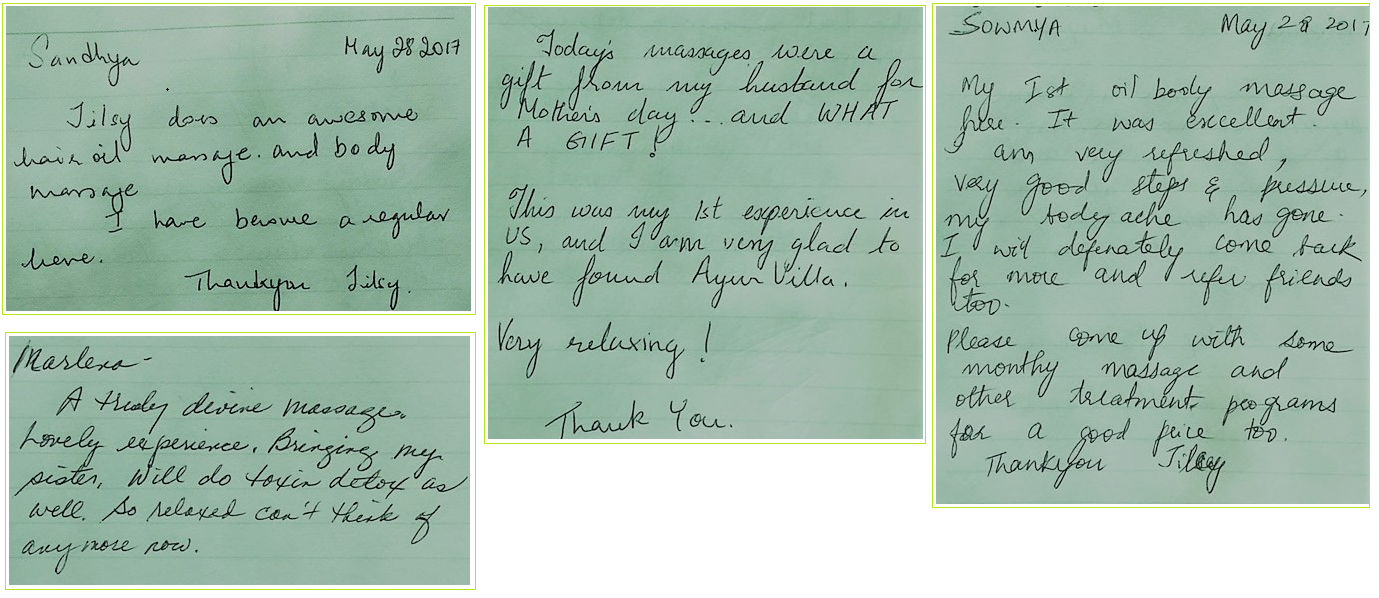 Sandhya May 28 2017
Jilsy does an awesome
hair oil massage. and body
massage
I have become a regular
here.
Thankyou Jilsy.
Marlena-
A truly divine massage.
Lovely experience. Bringing my
sister. Will do toxin detox as
well. So relaxed can't think of
anymore now.
Today's massages were a
gift from my husband for
Mother's day... and WHAT
A GIFT!
This was my 1st experience in
US, and I am very glad to
have found Ayur Villa.
Very relaxing!
Thank You.
SOWMYA May 28 2017
My Ist oil body massage
here. It was excellent.
I am very refreshed,
very good steps & pressure,
my body ache has gone.
I will definately come back
for more and refer friends
too.
Please come up with some
monthy massage and
other treatment programs
for a good price too.
Thankyou